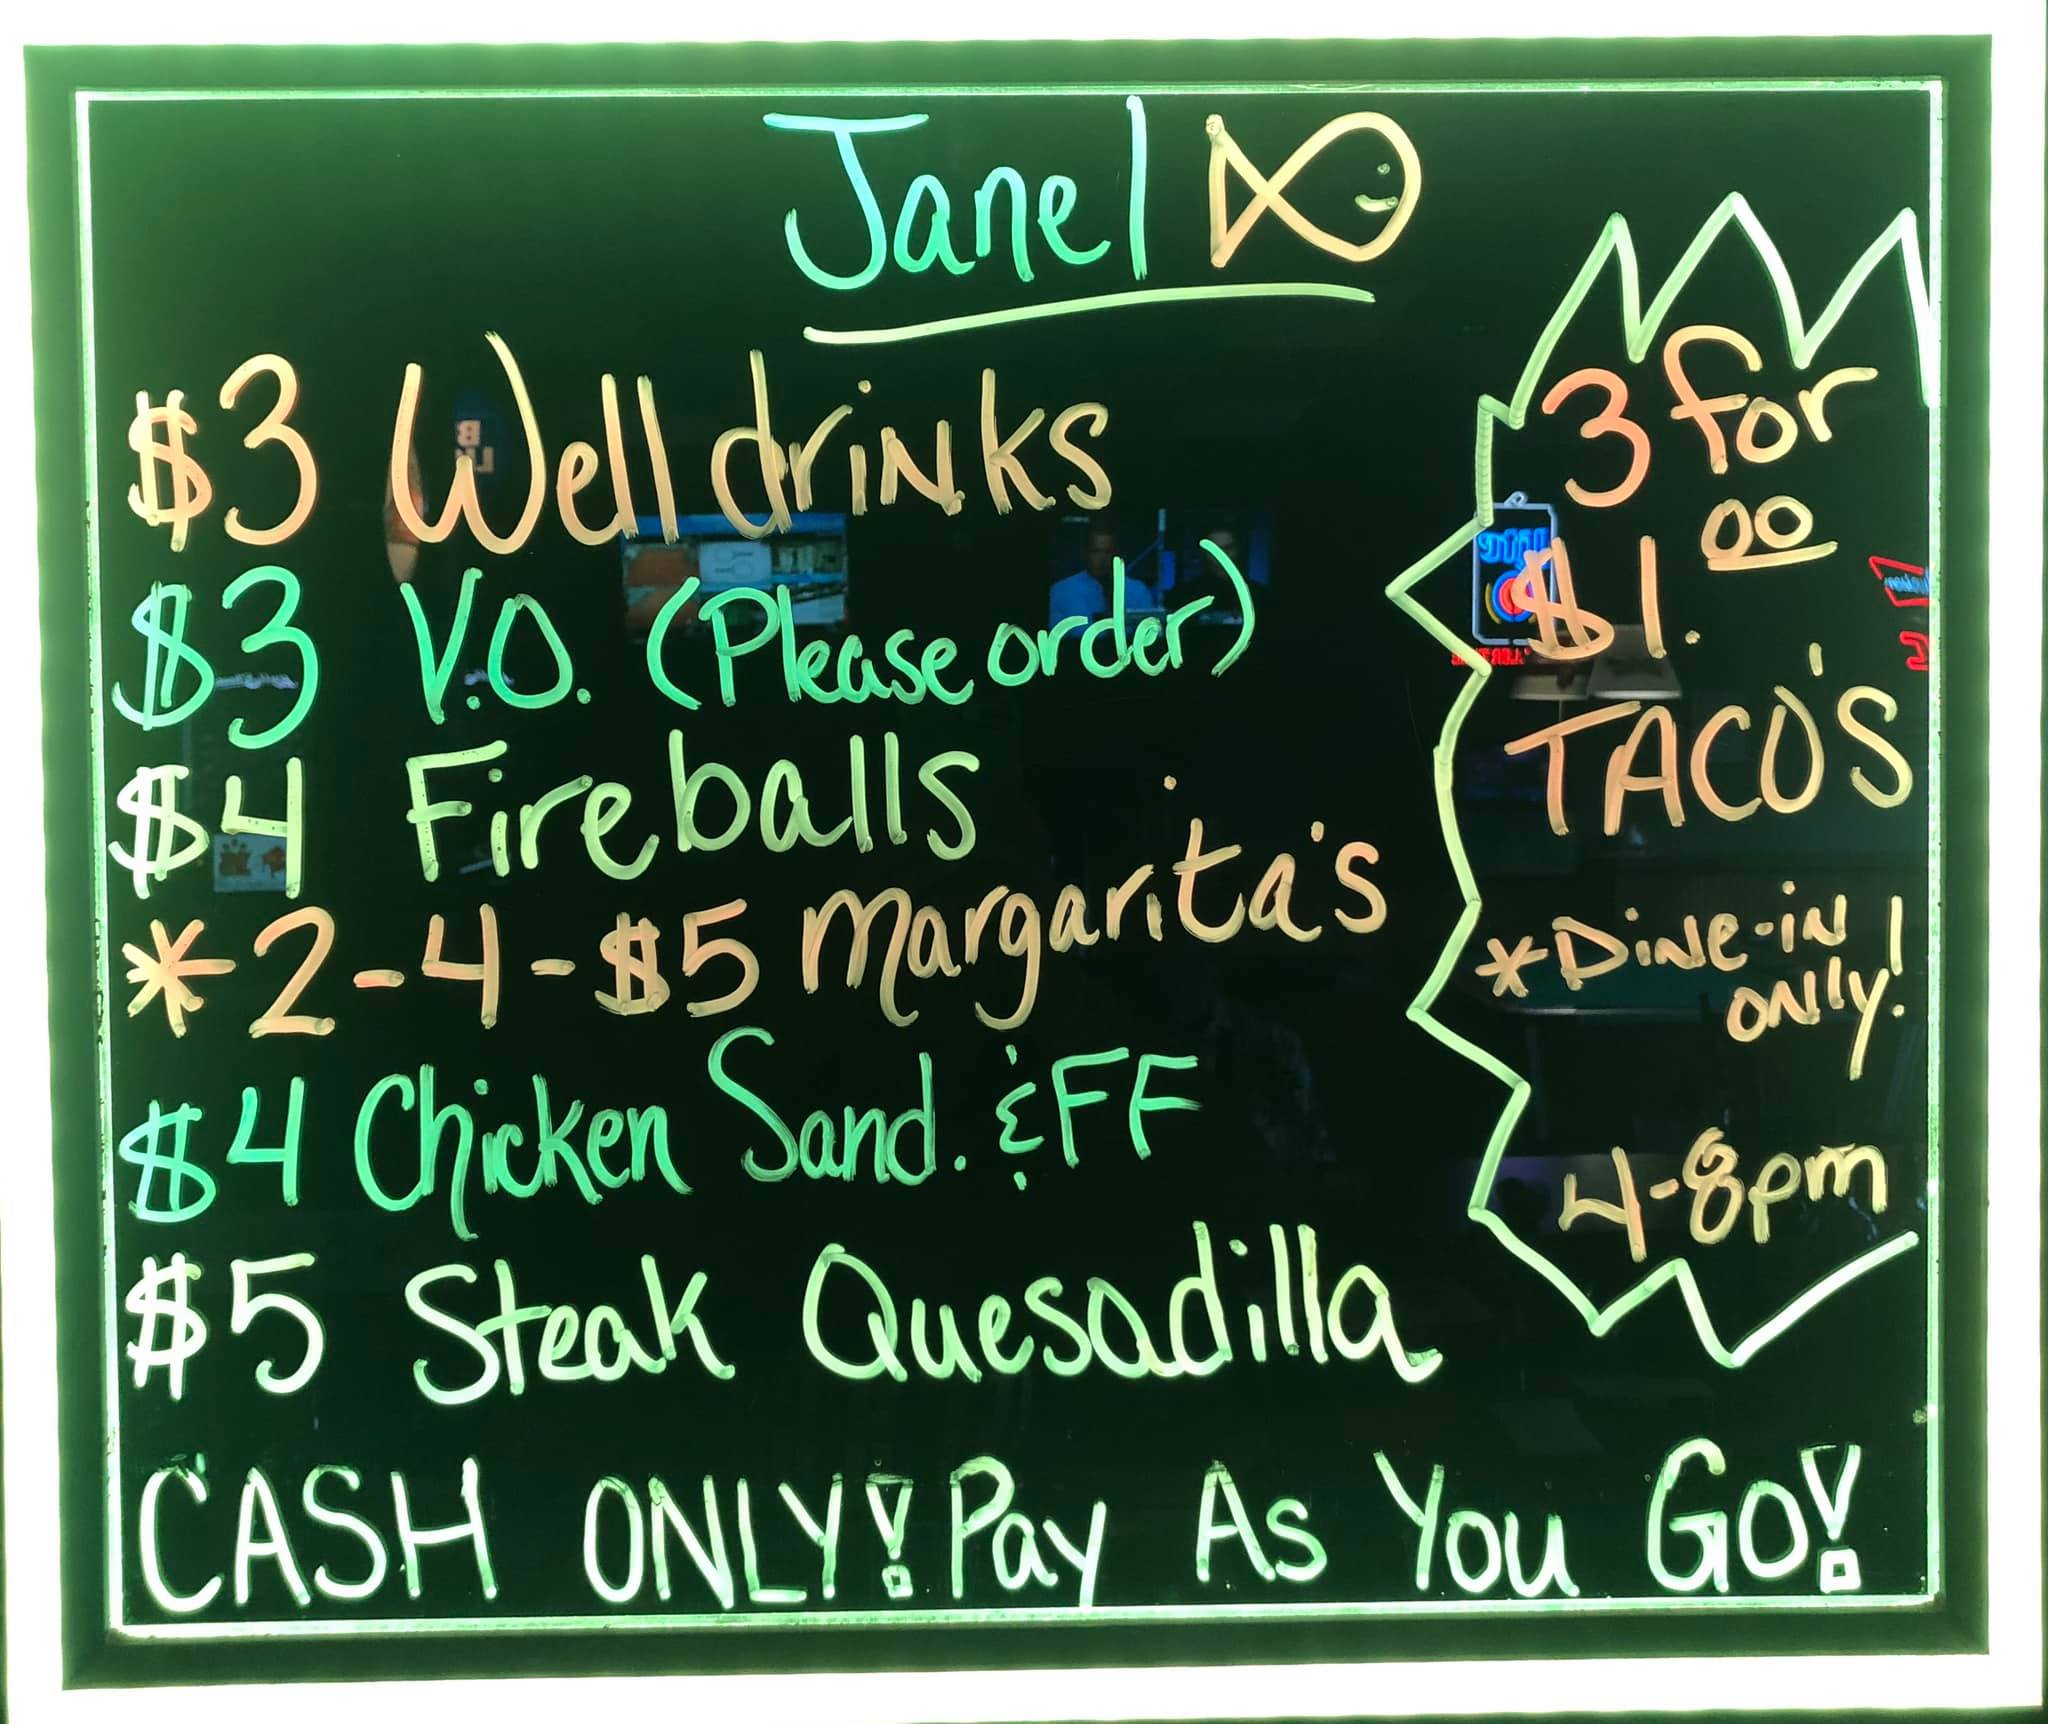 Janel
$3 Well drinks
$3 V.O. (Please order)
$4 Fireballs
*2-4-$5 Margarita's
$4 Chicken Sand. & FF
$5 Steak Quesadilla
CASH ONLY! Pay As You Go!
3 for
$1.00
TACO'S
*Dine-in
only!
4-8pm